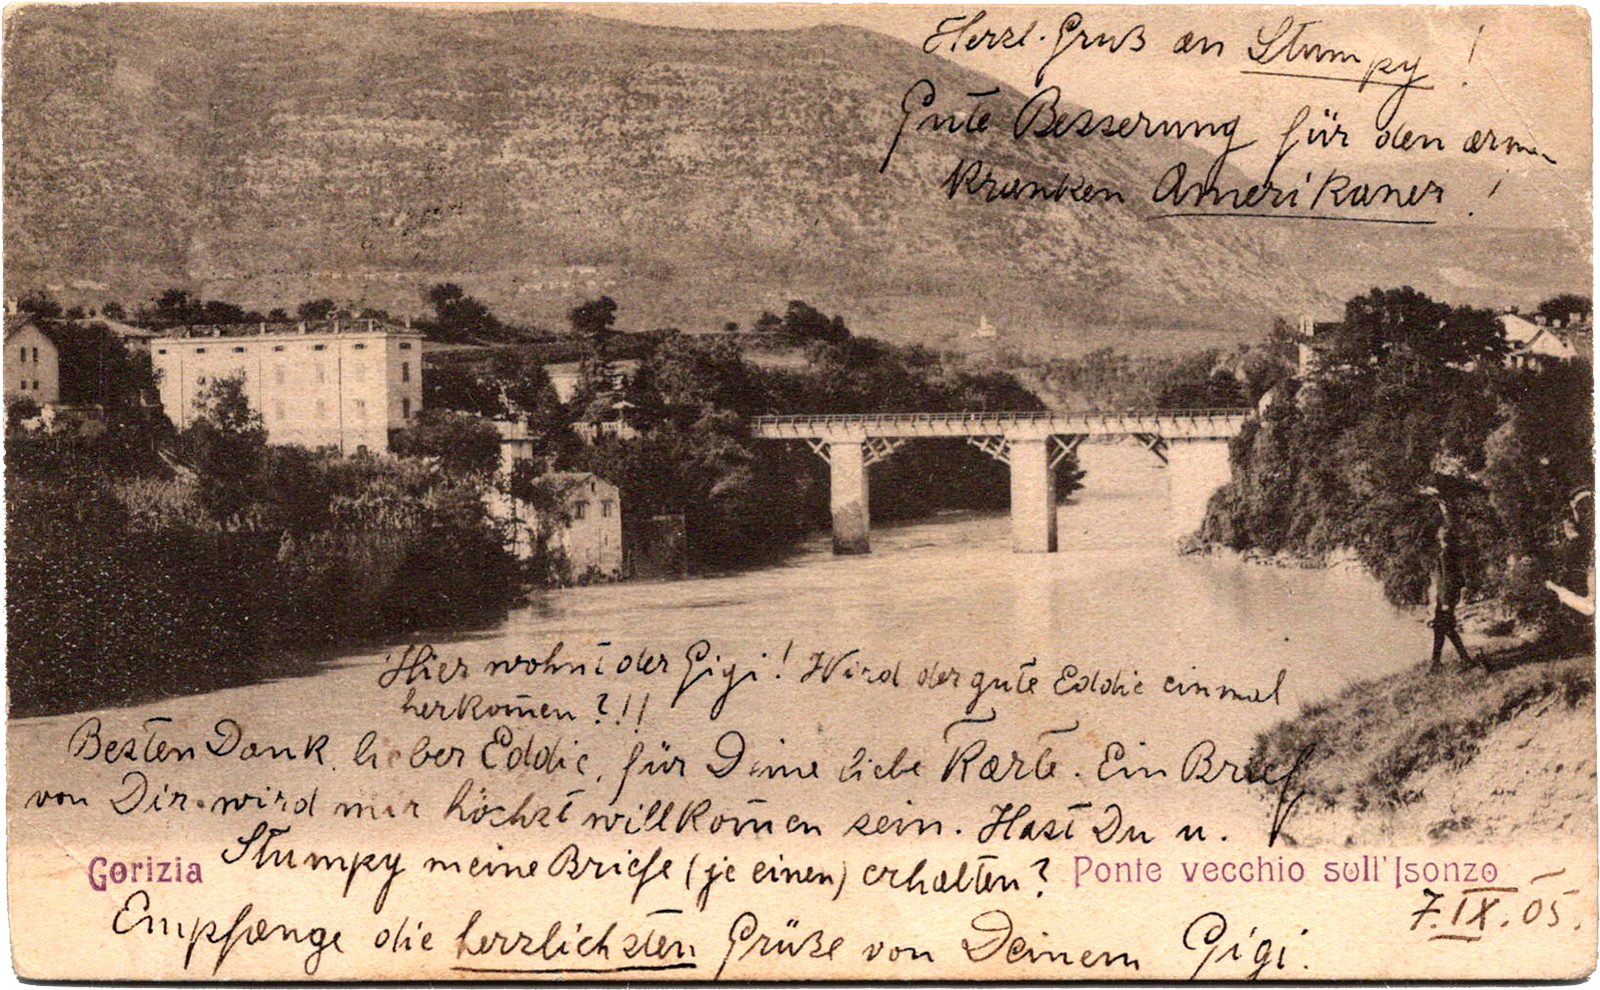 Herzl. Gruß an Stumpy!
Gute Besserung für den armen
kranken Amerikaner!
Hier wohnt der Gigi! Wird der gute Eddie einmal
herkom̅en?!!
Besten Dank, lieber Eddie, für Deine liebe Karte. Ein Brief
von Dir wird mir höchst willkom̅en sein. Hast Du u.
Stumpy meine Briefe (je einen) erhalten?
Gorizia
Ponte vecchio sull'Isonzo
7.IX.05.
Empfange die herzlichsten Grüße von Deinem Gigi.